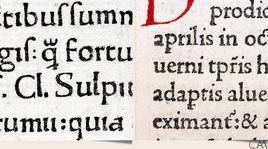 ctibus summ
gis: q̃ fortu
. Cl. Sulpi
tumii: quia
D prodic
aprilis in oct
uerni tpñs h
adaptis alue
eximant᷑: & a